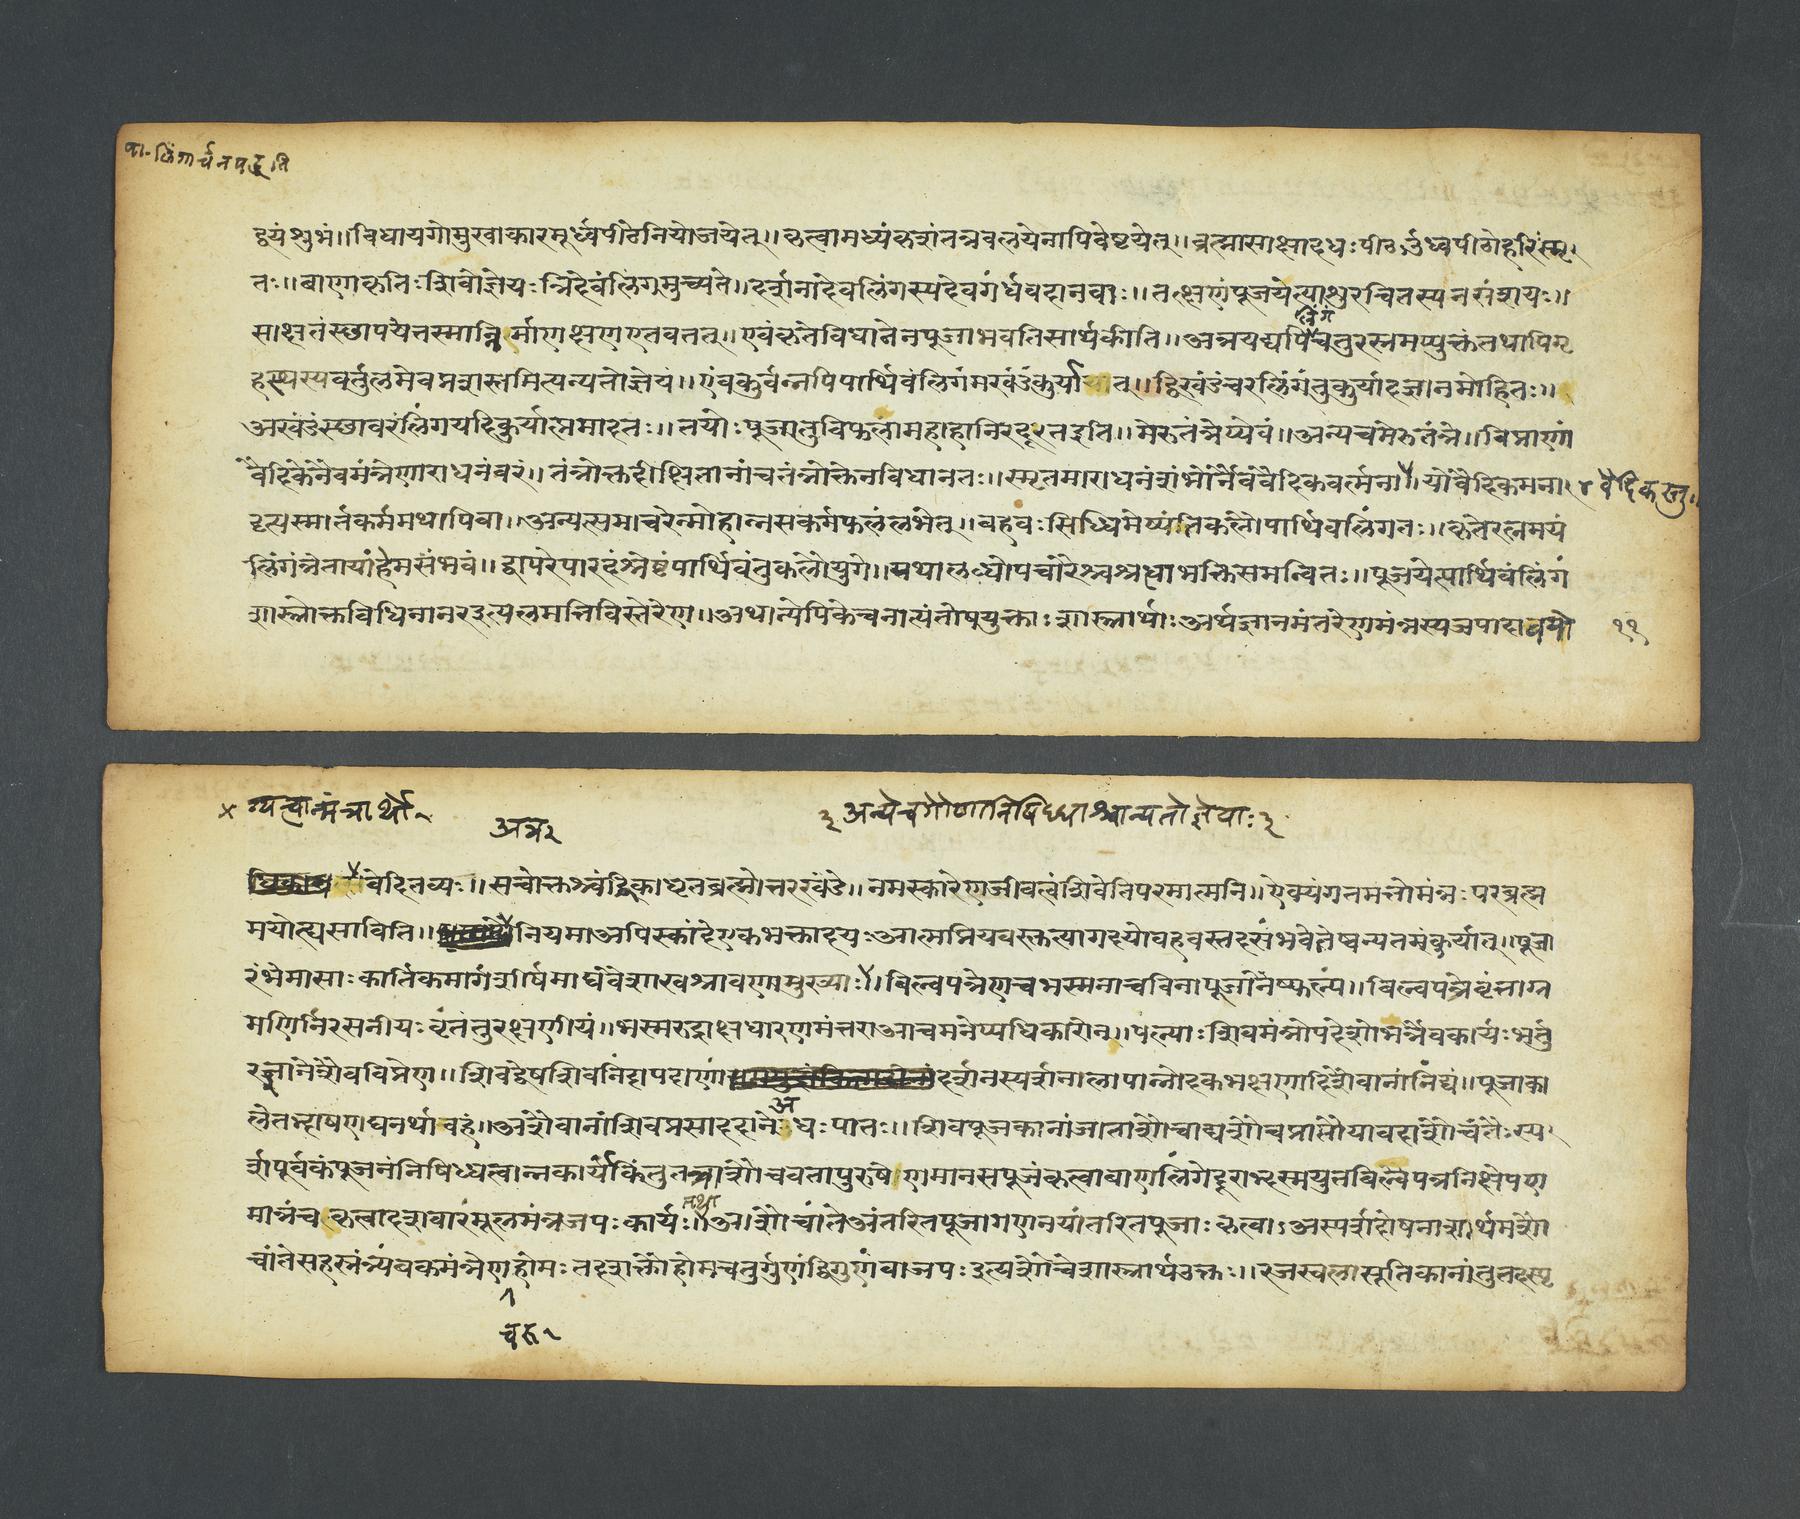 पा-लिंगार्चनपद्धति
द्वयंशुभं॥विधायगोमुखाकारमूर्ध्वपीठेनियोजयेत्॥कृत्वामध्यंकृशंतत्रवलयेनापिवेष्टयेत्॥ब्रह्मासाक्षादधःपीठऊर्ध्वपीठेहरिःस्मृ
तः॥बाणाकृतिःशिवोज्ञेयःत्रिदेवंलिंगमुच्यते॥दर्शनादेवलिंगस्यदेवगंर्धवदानवाः॥तत्क्षणंपूजयेत्याशुरन्वितस्यनसंशयः॥
साक्षतंस्छापयेत्तस्मान्निर्माणक्षणएतवतत्॥एवंकृतेविधानेनपूजाभवतिसार्थकीति॥अत्रयद्यपिचतुरस्रमप्युक्तंतथापिगृ
लिंगं
हस्थस्यवर्तुलमेवप्रशस्तमित्यन्यतोज्ञेयं॥एंवकुर्वन्नपिपार्थिवंलिंगमखंडंकुर्यात्॥द्विखंडंचरलिंगंतुकुर्यादज्ञानमोहितः॥
अखंडंस्छावरंलिंगयदिकुर्यात्प्रमादतः॥तयोःपूजातुविफलामहाहानिरदूरतइति॥मेरुतंत्रेप्येवं॥अन्यचमेरुतंत्रे॥विप्राणां
वैदिकेनैवमंत्रेणाराधनंवरं॥तंत्रोक्तदीक्षितानांचतंत्रोक्तेनविधानतः॥स्मृतमाराधनंशंभोर्नैवंवैदिकवर्त्मना॥योवैदिकमना ४ वैदिकस्तु॥
दृत्यस्मार्तकर्ममथापिवा॥अन्यत्समाचरेन्मोहान्नसकर्मफलंलभेत्॥बहवःसिध्धिमेष्यंतिकलौपार्थिवलिंगतः॥कृतेरत्नमयं
लिंगंत्रेतायांहेमसंभवं॥द्वापरेपारदंश्रेष्टंपार्थिवंतुकलौयुगे॥यथालब्धोपचारैश्चश्रधाभक्तिसमन्वितः॥पूजयेत्पार्थिवंलिंगं
शास्त्रोक्तविधिनानरइत्यलमतिविस्तरेण॥अथान्येपिकेचनात्यंतोपयुक्ताःशास्त्रार्थाःअर्थज्ञानमंतरेणमंत्रस्यजपादावयो ११
× ग्यत्वान्मंत्रार्थो१
अत्र२
३ अन्येचगौणानिषिध्धाश्चान्यतोज्ञेयाः३
वेदितव्यः॥सचोक्तश्चंद्रिकाधृतब्रह्मोत्तरखंडे॥नमस्कारेणजीवत्वंशिवेतिपरमात्मनि॥ऐक्यंगतमतोमंत्रःपरब्रह्म
मयोत्ह्यसाविति॥नियमाअपिस्कांदेएकभक्तादयःआत्मप्रियवस्तुत्यागदयोवहवस्तदसंभवेतेष्वन्यतमंकुर्यात्॥पूजा
रंभेमासाःकार्तिकमार्गशीर्षमाघवैशाखश्रावणामुख्याः॥बिल्वपत्रेणचभस्मनाचविनापूजानैष्फल्यं॥बिल्वपत्रेवृंताग्र
मणिर्निरसनीयःवृंतंतुरक्षणीयं॥भस्मरुद्राक्षधारणमंतराआचमनेप्यधिकारोन॥पत्न्याःशिवमंत्रोपदेशोभर्त्रैवकार्यःभर्तु
रज्ञानेशैवविप्रेण॥शिवद्वेषशिवनिंदापहाणांदर्शनस्पर्शनालापान्नोदकभक्षणादिशैवानांनिद्यं॥पूजाका
लेतद्भाषणघनर्थावहं॥अशैवानांशिवप्रसाददानेधःपातः॥शिवपूजकानांजाताशौचाद्यशौचप्राप्तौयावदाशौचंतैःस्प
अ
र्शपूर्वकंपूजनंनिषिध्यत्वान्नकार्यंकिंतुतत्राशौचवतापुरुषेणमानसपूजंकृत्वाबाणलिंगेदूराद्भस्मयुतबिल्वपत्रनिक्षेपण
मात्रंचकृत्वादशवारंमूलमंत्रजपःकार्यः॥आशौचांतेअंतरितपूजागणनयांतरितपूजाःकृत्वाऽअस्पर्शदोषनाशार्थमशौ
तथा
चांतेसहस्रंत्र्यंबकमंत्रेणहोमःतदशक्तौहोमचतुर्गुणंद्विगुणंवाजपःइत्यशौचेशास्त्रार्थउक्तः॥रजस्वलासूतिकानांतुतदस्पृ
चरु१